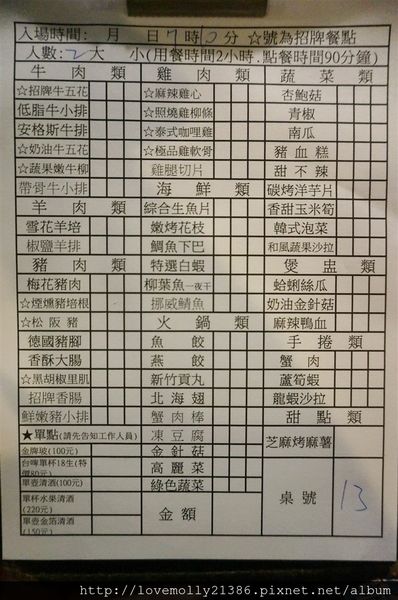 入場時間: 月 日7時0分 ☆號為招牌餐點
人數:2大 小(用餐時間2小時.點餐時間90分鐘)
牛肉類 雞肉類 蔬菜類
☆招牌牛五花 ☆麻辣雞心 杏鮑菇
低脂牛小排 ☆照燒雞柳條 青椒
安格斯牛排 ☆泰式咖哩雞 南瓜
☆奶油牛五花 ☆極品雞軟骨 豬血糕
☆蔬果嫩牛柳 雞腿切片 甜不辣
帶骨牛小排 海鮮類 碳烤洋芋片
羊肉類 綜合生魚片 香甜玉米筍
雪花羊培 嫩烤花枝 韓式泡菜
椒鹽羊排 鯛魚下巴 和風蔬果沙拉
豬肉類 特選白蝦 煲盅類
梅花豬肉 柳葉魚一夜干 蛤蜊絲瓜
☆煙燻豬培根 挪威鯖魚 奶油金針菇
☆松阪豬 火鍋類 麻辣鴨血
德國豬腳 魚餃 手捲類
香酥大腸 燕餃 蟹肉
☆黑胡椒里肌 新竹貢丸 蘆筍蝦
招牌香腸 北海翅 龍蝦沙拉
鮮嫩豬小排 蟹肉棒 甜點類
★單點(請先告知工作人員) 凍豆腐 芝麻烤麻薯
金牌玻(100元) 金針菇
台啤單杯18生(特價80元) 高麗菜
單壺清酒(100元) 綠色蔬菜
單杯水果清酒(220元) 金額 桌號 13
單壺金箔清酒(150元)
http://lovemolly21386.pixnet.net/album